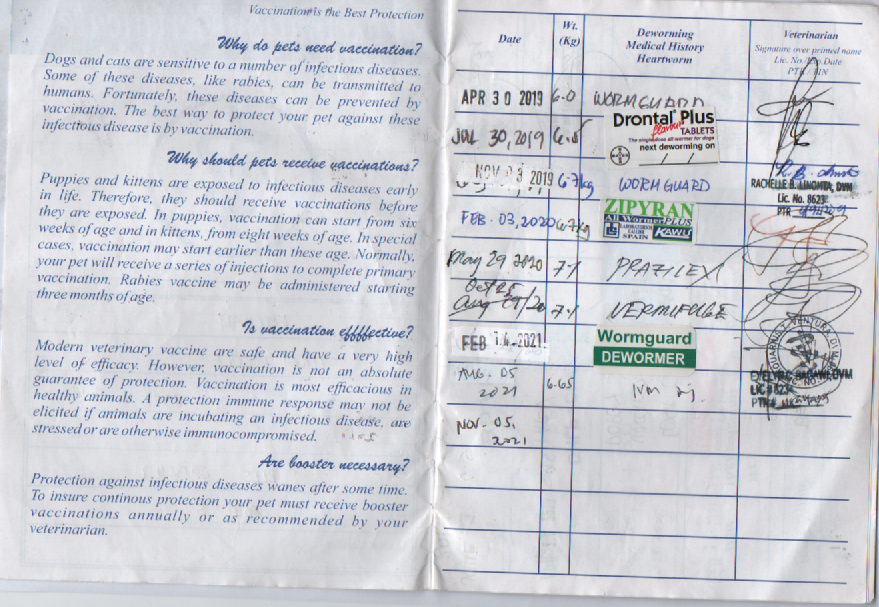 Vaccination is the Best Protection
Why do pets need vaccination?
Dogs and cats are sensitive to a number of infectious diseases.
Some of these diseases, like rabies, can be transmitted to
humans. Fortunately, these diseases can be prevented by
vaccination. The best way to protect your pet against these
infectious disease is by vaccination.
Why should pets receive vaccinations?
Puppies and kittens are exposed to infectious diseases early
in life. Therefore, they should receive vaccinations before
they are exposed. In puppies, vaccination can start from six
weeks of age and in kittens, from eight weeks of age. In special
cases, vaccination may start earlier than these age. Normally,
your pet will receive a series of injections to complete primary
vaccination. Rabies vaccine may be administered starting
three months of age.
Is vaccination effffective?
Modern veterinary vaccine are safe and have a very high
level of efficacy. However, vaccination is not an absolute
guarantee of protection. Vaccination is most efficacious in
healthy animals. A protection immune response may not be
elicited if animals are incubating an infectious disease, are
stressed or are otherwise immunocompromised.
Are booster necessary?
Protection against infectious diseases wanes after some time.
To insure continous protection your pet must receive booster
vaccinations annually or as recommended by your
veterinarian.
Date
Wt.
(Kg)
Deworming
Medical History
Heartworm
Veterinarian
Signature over printed name
Lic. No. Date
PTR / TIN
APR 30 2019 6.0 WORMGUARD
Drontal Plus
flavour TABLETS
The single dose all-wormer for dogs
next deworming on
BAYER
JUL 30, 2019 6.5
NOV 03 2019 6.7kg WORMGUARD
RACHELLE B. LINGMTA, DVM
Lic. No. 8623
PTR
FEB. 03, 2020 6.7kg
ZIPYRAN
All Wormer PLUS
LABORATORIOS
CALIER
SPAIN
KAWU
May 29 2020 7.1 PRAZILEX
Oct 25
Aug 29/20 7.1 VERMIFUGE
FEB 14 2021
Wormguard
DEWORMER
AUG. 05
2021
6.65
DVM
LIC
PTR#
NOV. 05,
2021